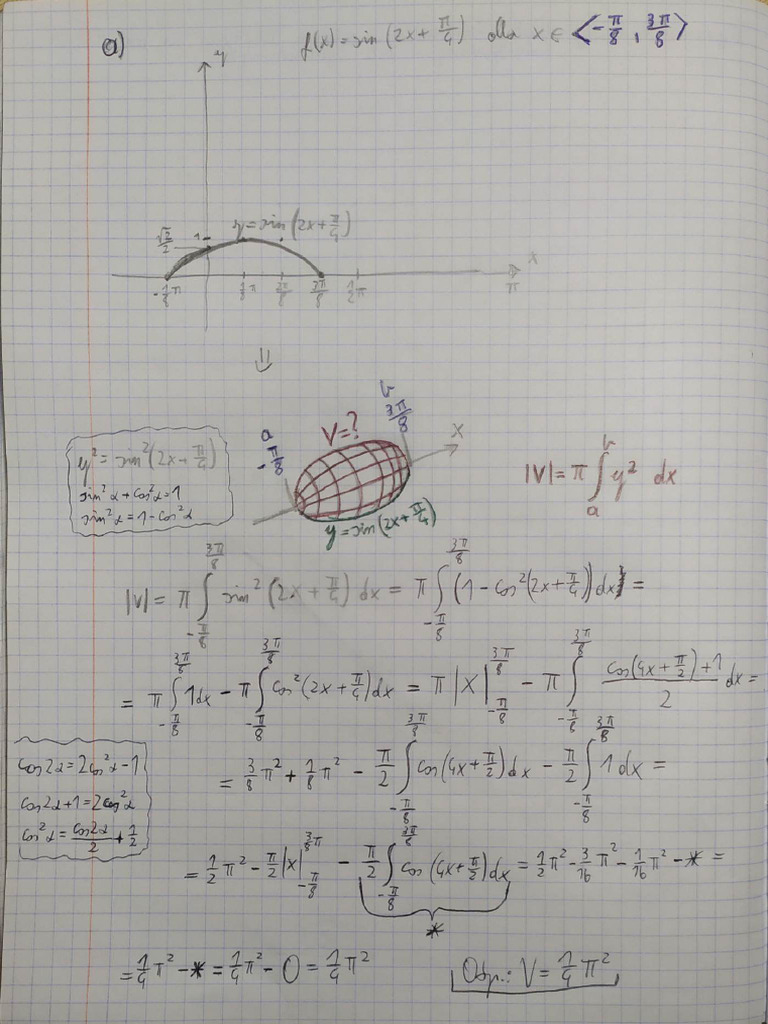 a) f(x) = sin(2x + π/4) dla x ∈ ⟨-π/8, 3π/8⟩
y
y = sin(2x + π/4)
√2/2 1
x
-1/8 π 1/8 π 2π/8 3π/8 1/2 π π
⇓
b
3π/8
a
-π/8
V = ?
x
y² = sin²(2x + π/4)
sin²α + cos²α = 1
sin²α = 1 - cos²α
y = sin(2x + π/4)
|V| = π ∫_a^b y² dx
|V| = π ∫_{-π/8}^{3π/8} sin²(2x + π/4) dx = π ∫_{-π/8}^{3π/8} (1 - cos²(2x + π/4)) dx =
= π ∫_{-π/8}^{3π/8} 1 dx - π ∫_{-π/8}^{3π/8} cos²(2x + π/4) dx = π |x|_{-π/8}^{3π/8} - π ∫_{-π/8}^{3π/8} (cos(4x + π/2) + 1)/2 dx =
cos2α = 2cos²α - 1
cos2α + 1 = 2cos²α
cos²α = cos2α/2 + 1/2
= 3/8 π² + 1/8 π² - π/2 ∫_{-π/8}^{3π/8} cos(4x + π/2) dx - π/2 ∫_{-π/8}^{3π/8} 1 dx =
= 1/2 π² - π/2 |x|_{-π/8}^{3/8 π} - π/2 ∫_{-π/8}^{3π/8} cos(4x + π/2) dx = 1/2 π² - 3/16 π² - 1/16 π² - * =
*
= 1/4 π² - * = 1/4 π² - 0 = 1/4 π²
Odp.: V = 1/4 π²